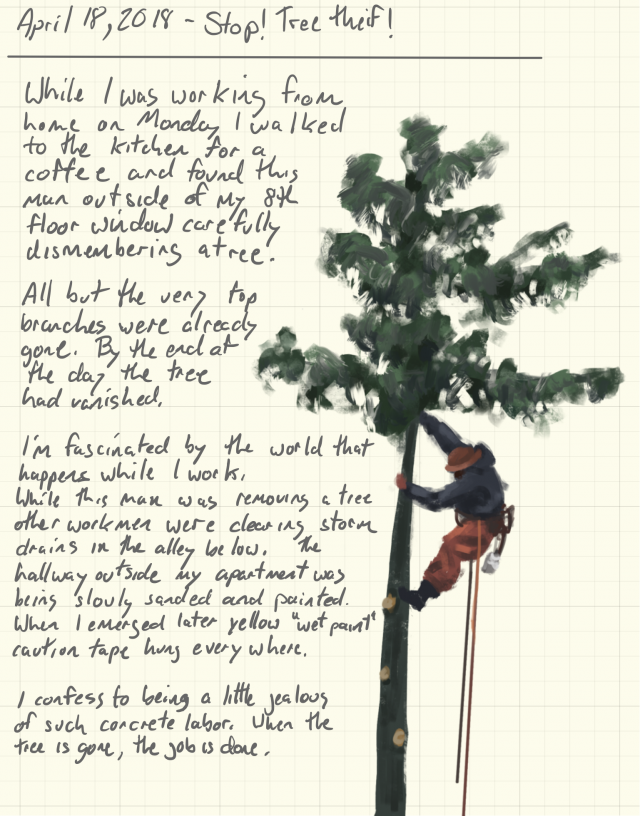 April 18, 2018 - Stop! Tree theif!
While I was working from
home on Monday I walked
to the kitchen for a
coffee and found this
man outside of my 8th
floor window carefully
dismembering a tree.
All but the very top
branches were already
gone. By the end of
the day the tree
had vanished.
I'm fascinated by the world that
happens while I work.
While this man was removing a tree
other workmen were clearing storm
drains in the alley below. The
hallway outside my apartment was
being slowly sanded and painted.
When I emerged later yellow "wet paint"
caution tape hung every where.
I confess to being a little jealous
of such concrete labor. When the
tree is gone, the job is done.